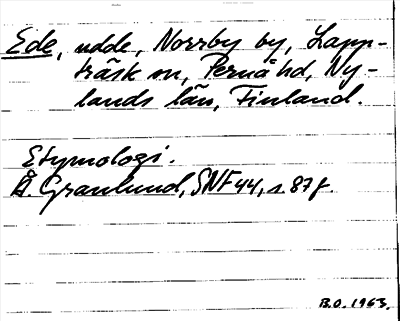 Ede, udde, Norrby by, Lapp-
träsk sn, Pernå hd, Ny-
lands län, Finland.
Etymologi.
Å. Granlund, SNF 44, s. 87f.
B.O. 1963.